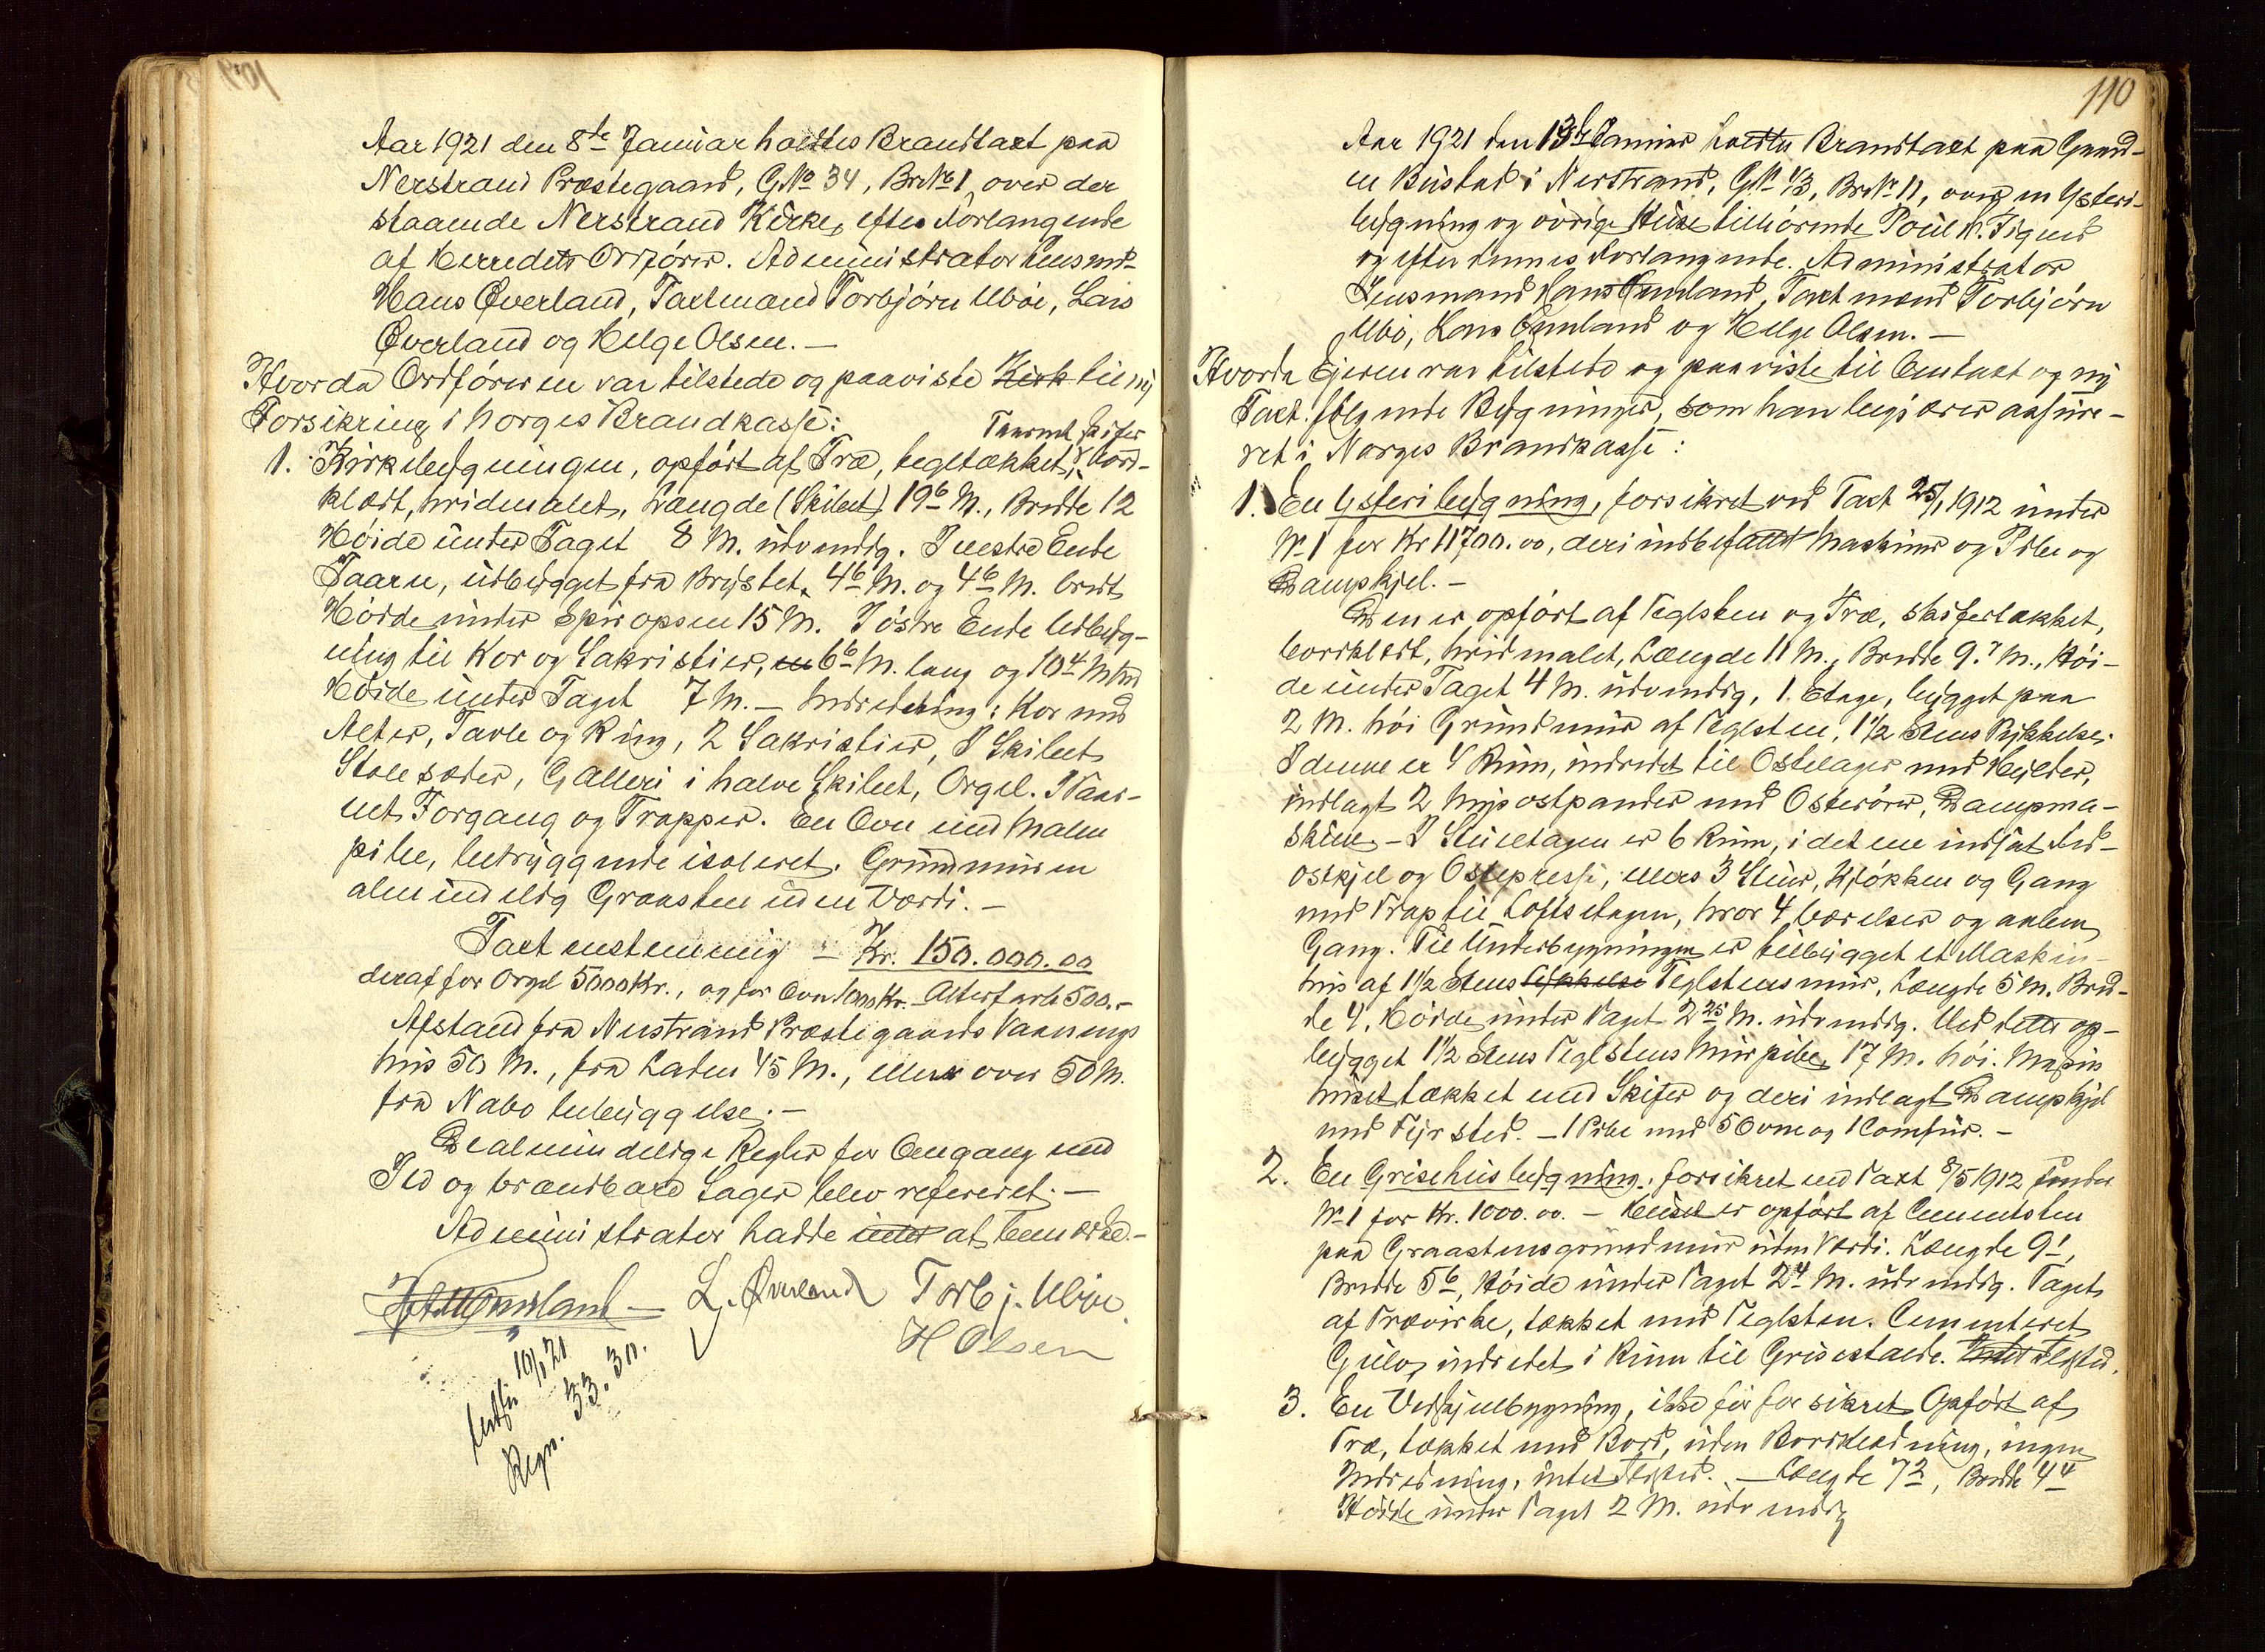 Aar 1921 den 8de Januar holdtes Brandtaxt paa
Nerstrand Præstegaard, GNo 34, BrNo 1, over der
staaende Nerstrand Kirke, efter Forlangende
af Herredets Ordfører. Administrator Lensmd.
Hans Øverland, Taxtmænd Torbjørn Ubøe, Lars
Øverland og Helge Olsen. —
Hvorda Ordføreren var tilstede og paaviste Kirk til ny
Forsikring i Norges Brandkasse:
Taarnet Skifer
1. Kirkebygningen, opført af Træ, tegltækket, bord-
klædt, hvidmalet, Længde (Skibet) 19 6 M., Bredde 12
Høide under Taget 8 M. udvendig. I vestre Ende
Taarn, udbygget fra Brystet, 4 6 M. og 4 6 M. bredt
Høide under Spiropsen 15 M. I østre Ende Udbyg-
ning til Kor og Sakristier, 6 6 M. lang og 10 4 M bred
Høide under Taget 7 M. — Indredning: Kor med
Alter, Tavle og Ring, 2 Sakristier, I Skibet
Stolesæder, Galleri i halve Skibet, Orgel. I Taar-
net Forgang og Trapper. En Ovn med Malm
pibe, betryggende isoleret. Grundmuren
almindelig Graasten uden Værdi. —
Taxt enstemmig — Kr. 150.000.00
deraf for Orgel 5000 Kr., og for Ovn 1000 Kr. Altertavle 500.-
Afstand fra Nerstrand Præstegaards Vaanings
hus 50 M., fra Laden 45 M., ellers over 50 M.
fra Nabo bebyggelse. —
De almindelige Regler for Omgang med
Ild og brændbare Sager blev refereret. —
Administrator hadde intet at bemærke. —
L. Øverland Torbj. Ubøe.
H Olsen
10/1 21
Regn. 33.30.
110
Aar 1921 den 13de Januar holdtes Brandtaxt paa Gaard-
en Bustad i Nerstrand, GNo 43, BrNo 11, over en Ysteri-
bygning og øvrige Huse tilhørende Poul K.
og efter dennes Forlangende. Administrator
Lensmand Hans Øverland, Taxtmænd Torbjørn
Ubø, Lars Øverland og Helge Olsen. —
Hvorda Ejeren var tilstede og paaviste til Omtaxt og ny
Taxt følgende Bygninger, som han begjærer assure-
ret i Norges Brandkasse:
1. En Ysteribygning, forsikret ved Taxt 25/1 1912 under
No 1 for Kr 11700.00, deri indbefattet Maskiner og Pibe og
Dampkjel. —
Den er opført af Teglsten og Træ, skifertækket,
bordklædt, hvidmalet, Længde 11 M., Bredde 9.7 M., Høi-
de under Taget 4 M. udvendig, 1 Etage, bygget paa
2 M. høi Grundmur af Teglsten, 1 1/2 Stens Tykkelse.
I denne er 4 Rum, indredet til Ostelager med Hylder,
indlagt 2 Mysostpander med Osterører, Dampma-
skine. — I Stueetagen er 6 Rum, i det ene indsat
ostkjel og Ostepresse, ellers 3 Stuer, Kjøkken og Gang
med Trap til Loftsetagen, hvor 4 Værelser og aaben
Gang. Til Underbygningen er tilbygget et Maskin-
hus af 1 1/2 Stens Tykkelse Teglstensmur, Længde 5 M. Bred-
de 4, Høide under Taget 2 25 M. udvendig. Ved dette op-
bygget 1 1/2 Stens Teglstens Murpibe, 17 M. høi. Maskin
huset tækket med Skifer og deri indlagt Dampkjel
med Fyrsted. — 1 Pibe med 5 Ovne og 1 Comfur. —
2. En Grisehusbygning, forsikret ved Taxt 8/5 1912 under
No 1 for Kr. 1000.00. — Huset er opført af Cementsten
paa Graastensgrundmur uden Værdi. Længde 9 1,
Bredde 5 6, Høide under Taget 2 4 M. udvendig. Taget
af Trævirke, tækket med Teglsten. Cementeret
Gulv, indredet i Rum til Grisestalde. Intet Ildsted.
3. En Vedskjulbygning, ikke før forsikret. Opført af
Træ, tækket med Bord, uden Bordklædning, ingen
Indredning, intet Ildsted. — Længde 7 2, Bredde 4 4
Høide under Taget 2 M. udvendig